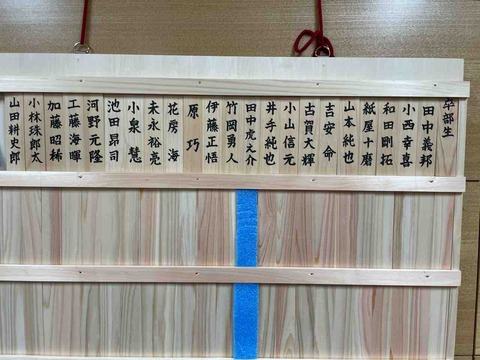 卒部生
田中義邦
小西幸喜
和田剛拓
紙屋十磨
山本純也
吉安命
古賀大輝
小山信元
井手純也
田中虎之介
竹岡勇人
伊藤正悟
原巧
花房海
末永裕亮
小泉慧
池田昂司
河野元隆
工藤海暉
加藤昭稀
小林珠郎太
山田耕史郎